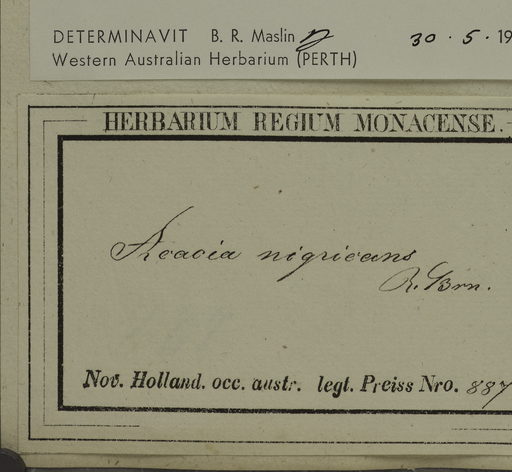 DETERMINAVIT B. R. Maslin 30 · 5 · 19
Western Australian Herbarium (PERTH)
HERBARIUM REGIUM MONACENSE.
Acacia nigricans
R. Brn.
Nov. Holland. occ. austr. legt. Preiss Nro. 887